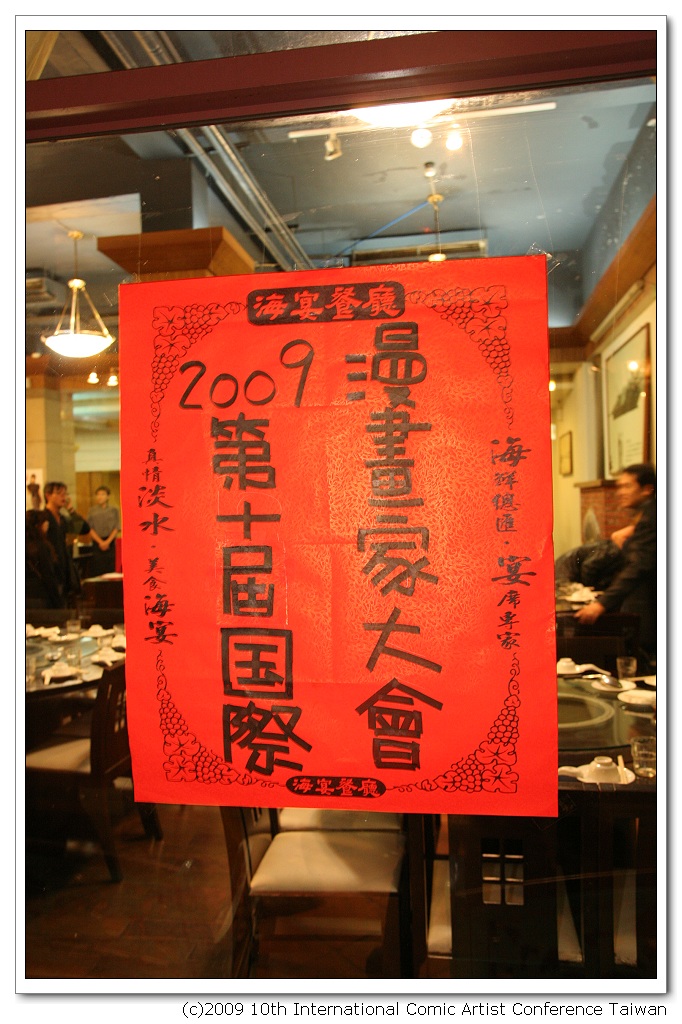 海宴餐廳
2009
第十屆国際
漫畫家大會
海鮮總匯·宴席專家
真情淡水·美食海宴
海宴餐廳
(c)2009 10th International Comic Artist Conference Taiwan